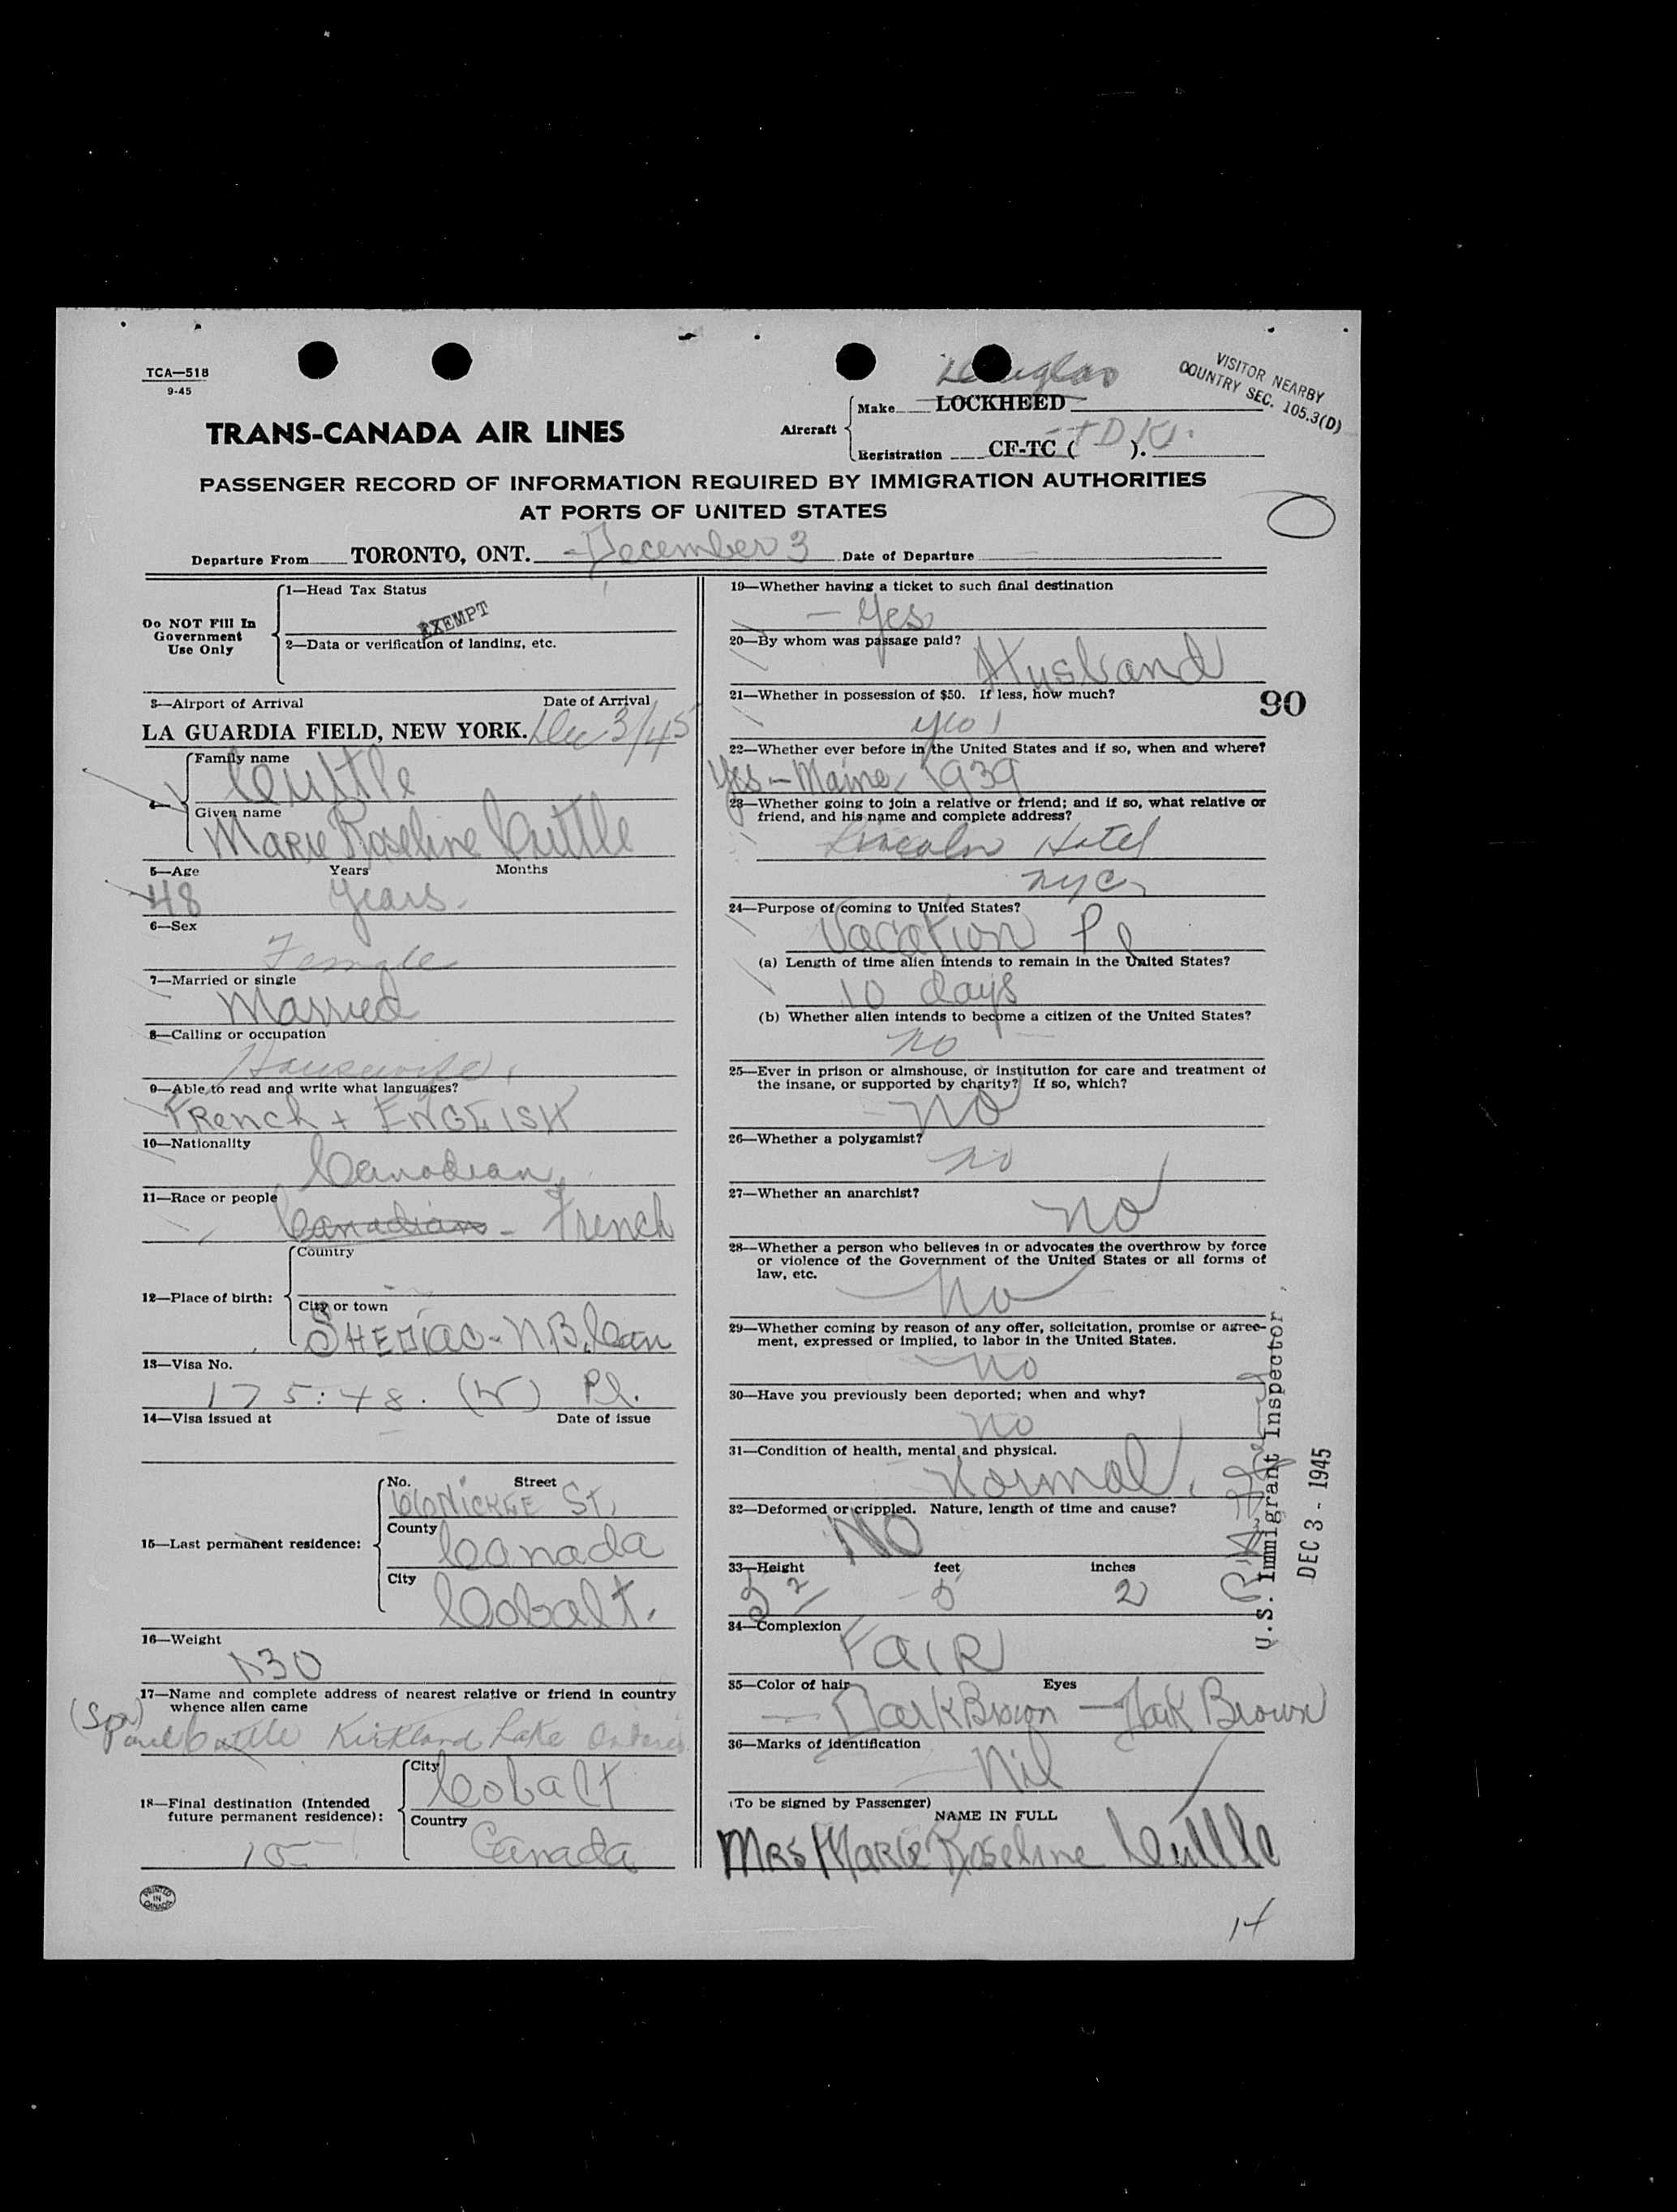 TCA—518
9-45
VISITOR NEARBY
COUNTRY SEC. 105.3(D)
Douglas
Aircraft
Make LOCKHEED
Registration CF-TC (TDK).
TRANS-CANADA AIR LINES
PASSENGER RECORD OF INFORMATION REQUIRED BY IMMIGRATION AUTHORITIES
AT PORTS OF UNITED STATES
Departure From TORONTO, ONT. - December 3 Date of Departure
Do NOT Fill In
Government
Use Only
1—Head Tax Status
EXEMPT
2—Data or verification of landing, etc.
3—Airport of Arrival Date of Arrival
LA GUARDIA FIELD, NEW YORK. Dec 3/45
4—
Family name
Cuttle
Given name
Marie Roseline Cuttle
5—Age Years Months
48 Years.
6—Sex
Female
7—Married or single
Married
8—Calling or occupation
Housewife.
9—Able to read and write what languages?
French + ENGLISH
10—Nationality
Canadian
11—Race or people
Canadian - French
12—Place of birth:
Country
City or town
SHEDIAC - N.B. Can
13—Visa No.
175:48. (W) Pl.
14—Visa issued at Date of issue
15—Last permanent residence:
No. Street
NICKLE St.
County
Canada
City
Cobalt.
16—Weight
130
17—Name and complete address of nearest relative or friend in country
whence alien came
(Son)
Paul Cuttle Kirkland Lake Ontario
18—Final destination (Intended
future permanent residence):
City
Cobalt
Country
Canada
PRINTED
IN
CANADA
19—Whether having a ticket to such final destination
- Yes
20—By whom was passage paid?
Husband
21—Whether in possession of $50. If less, how much?
yes
90
22—Whether ever before in the United States and if so, when and where?
Yes - Maine, 1939
23—Whether going to join a relative or friend; and if so, what relative or
friend, and his name and complete address?
Lincoln Hotel
NYC
24—Purpose of coming to United States?
Vacation Pl
(a) Length of time alien intends to remain in the United States?
10 days
(b) Whether alien intends to become a citizen of the United States?
no
25—Ever in prison or almshouse, or institution for care and treatment of
the insane, or supported by charity? If so, which?
- No
26—Whether a polygamist?
no
27—Whether an anarchist?
no
28—Whether a person who believes in or advocates the overthrow by force
or violence of the Government of the United States or all forms of
law, etc.
No
29—Whether coming by reason of any offer, solicitation, promise or agree-
ment, expressed or implied, to labor in the United States.
no
30—Have you previously been deported; when and why?
no
31—Condition of health, mental and physical.
Normal.
32—Deformed or crippled. Nature, length of time and cause?
NO
33—Height feet inches
5 2 5 2
34—Complexion
FAIR
35—Color of hair Eyes
Dark Brown - Dark Brown
36—Marks of identification
Nil
(To be signed by Passenger)
NAME IN FULL
Mrs Marie Roseline Cuttle
U.S. Immigrant Inspector
DEC 3 - 1945
14